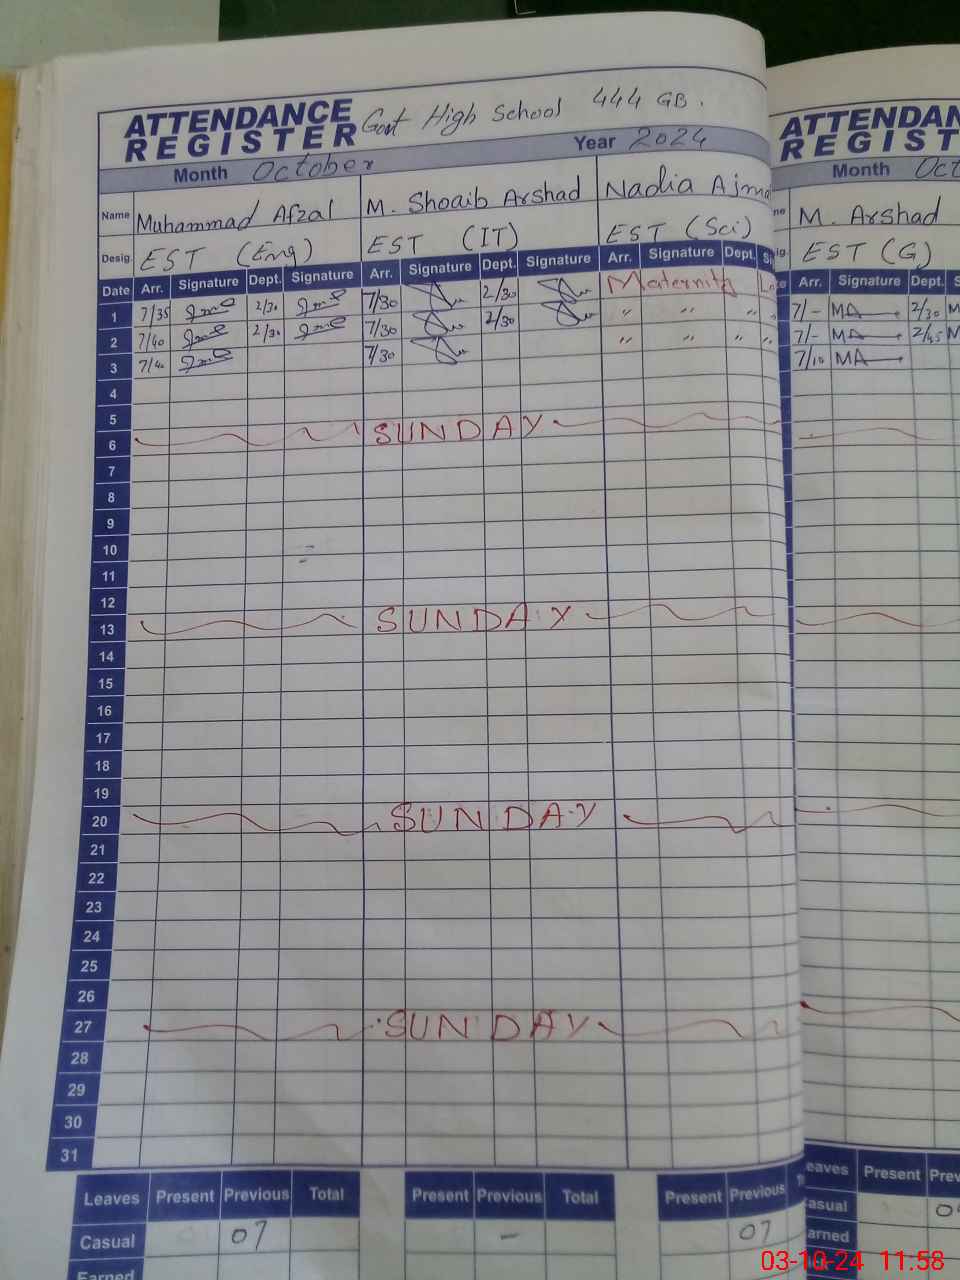 ATTENDANCE REGISTER Govt High School 444 GB.
Month October Year 2024
Name Muhammad Afzal M. Shoaib Arshad Nadia Ajma
Desig. EST (Eng) EST (IT) EST (Sci)
Date Arr. Signature Dept. Signature Arr. Signature Dept. Signature Arr. Signature Dept. Si
1 7/35 2/30 7/30 2/30 Maternity
2 7/40 2/30 7/30 2/30 " " " "
3 7/40 7/30 " " " "
4
5
6 SUNDAY
7
8
9
10
11
12
13 SUNDAY
14
15
16
17
18
19
20 SUNDAY
21
22
23
24
25
26
27 SUNDAY
28
29
30
31
Leaves Present Previous Total Present Previous Total Present Previous
Casual 07 - 07
Earned
ATTENDAN
REGIST
Month Oct
M. Arshad
EST (G)
Arr. Signature Dept. S
7/- MA 2/30 M
7/- MA 2/45 M
7/10 MA
eaves Present Prev
asual
arned
03-10-24 11:58